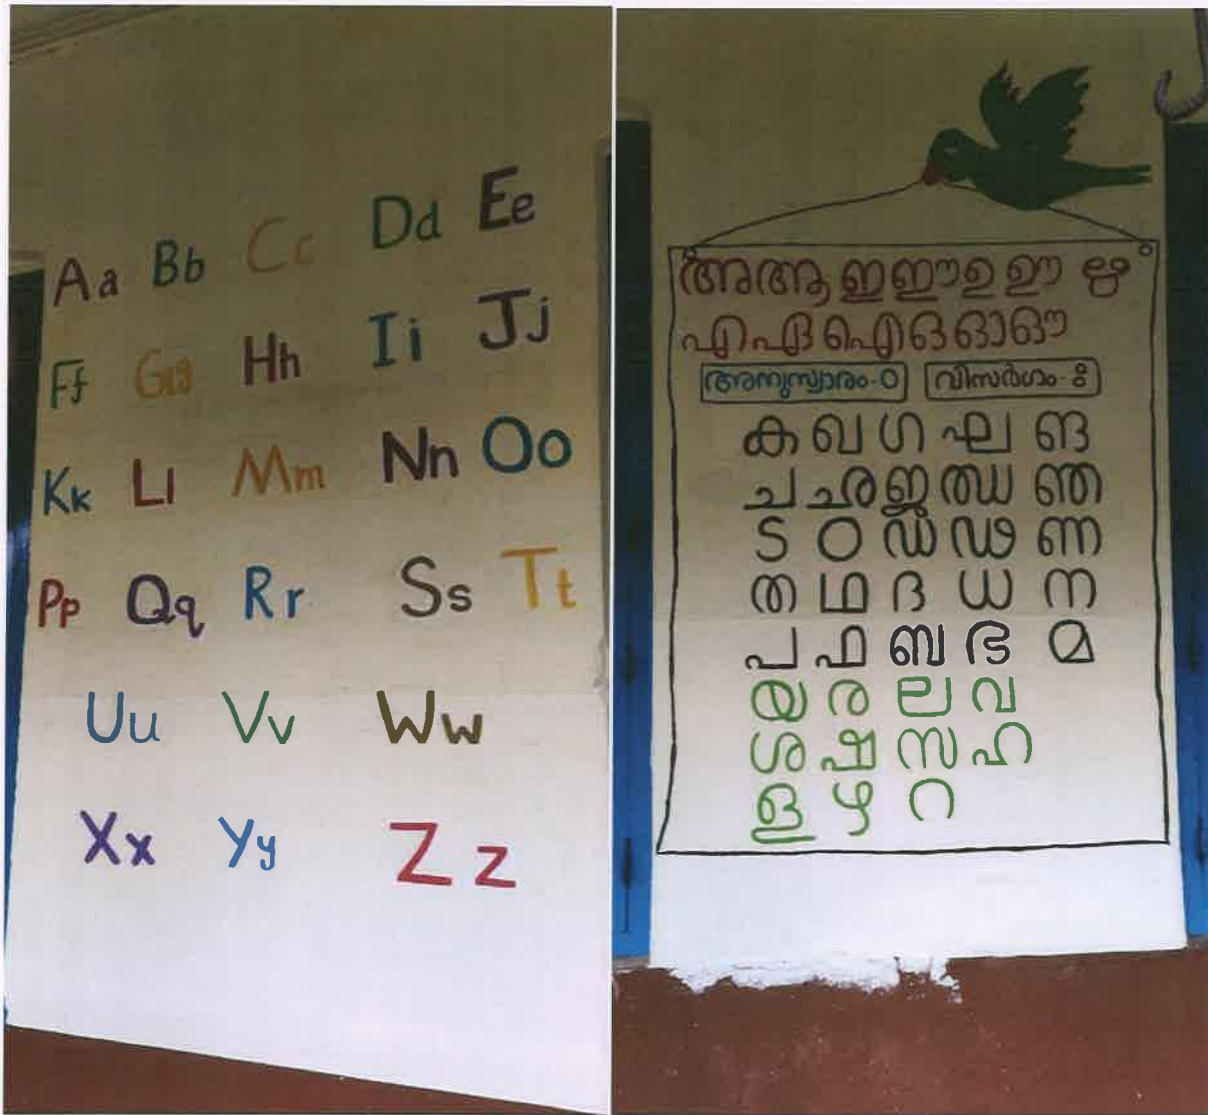 Aa Bb Cc Dd Ee
Ff Gg Hh Ii Jj
Kk Ll Mm Nn Oo
Pp Qq Rr Ss Tt
Uu Vv Ww
Xx Yy Zz
അ ആ ഇ ഈ ഉ ഊ ഋ
എ ഏ ഐ ഒ ഓ ഔ
അനുസ്വാരം-ം വിസർഗം-ഃ
ക ഖ ഗ ഘ ങ
ച ഛ ജ ഝ ഞ
ട ഠ ഡ ഢ ണ
ത ഥ ദ ധ ന
പ ഫ ബ ഭ മ
യ ര ല വ
ശ ഷ സ ഹ
ള ഴ റ